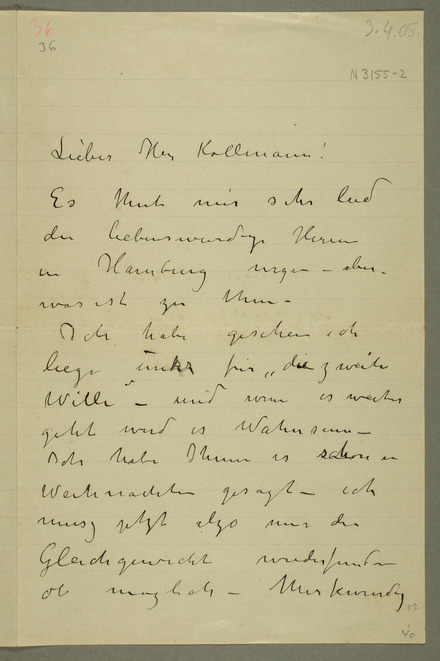 36
36
3.4.05.
N 3155-2
Lieber Herr Kollmann!
Es thut mir sehr leid
die liebenswurdige Herrn
in Hamburg – aber
was ist zu thun –
Ich habe gesehen ich
liege unter für „die zweite
Wille" – und wenn es weiter
geht wird es Wahnsinn –
Ich habe Ihnen es schon
Weihnachten gesagt – ich
musz jetzt also nur die
Gleichgewicht wiederfinden
ob moglich – Merkwurdig
37
40